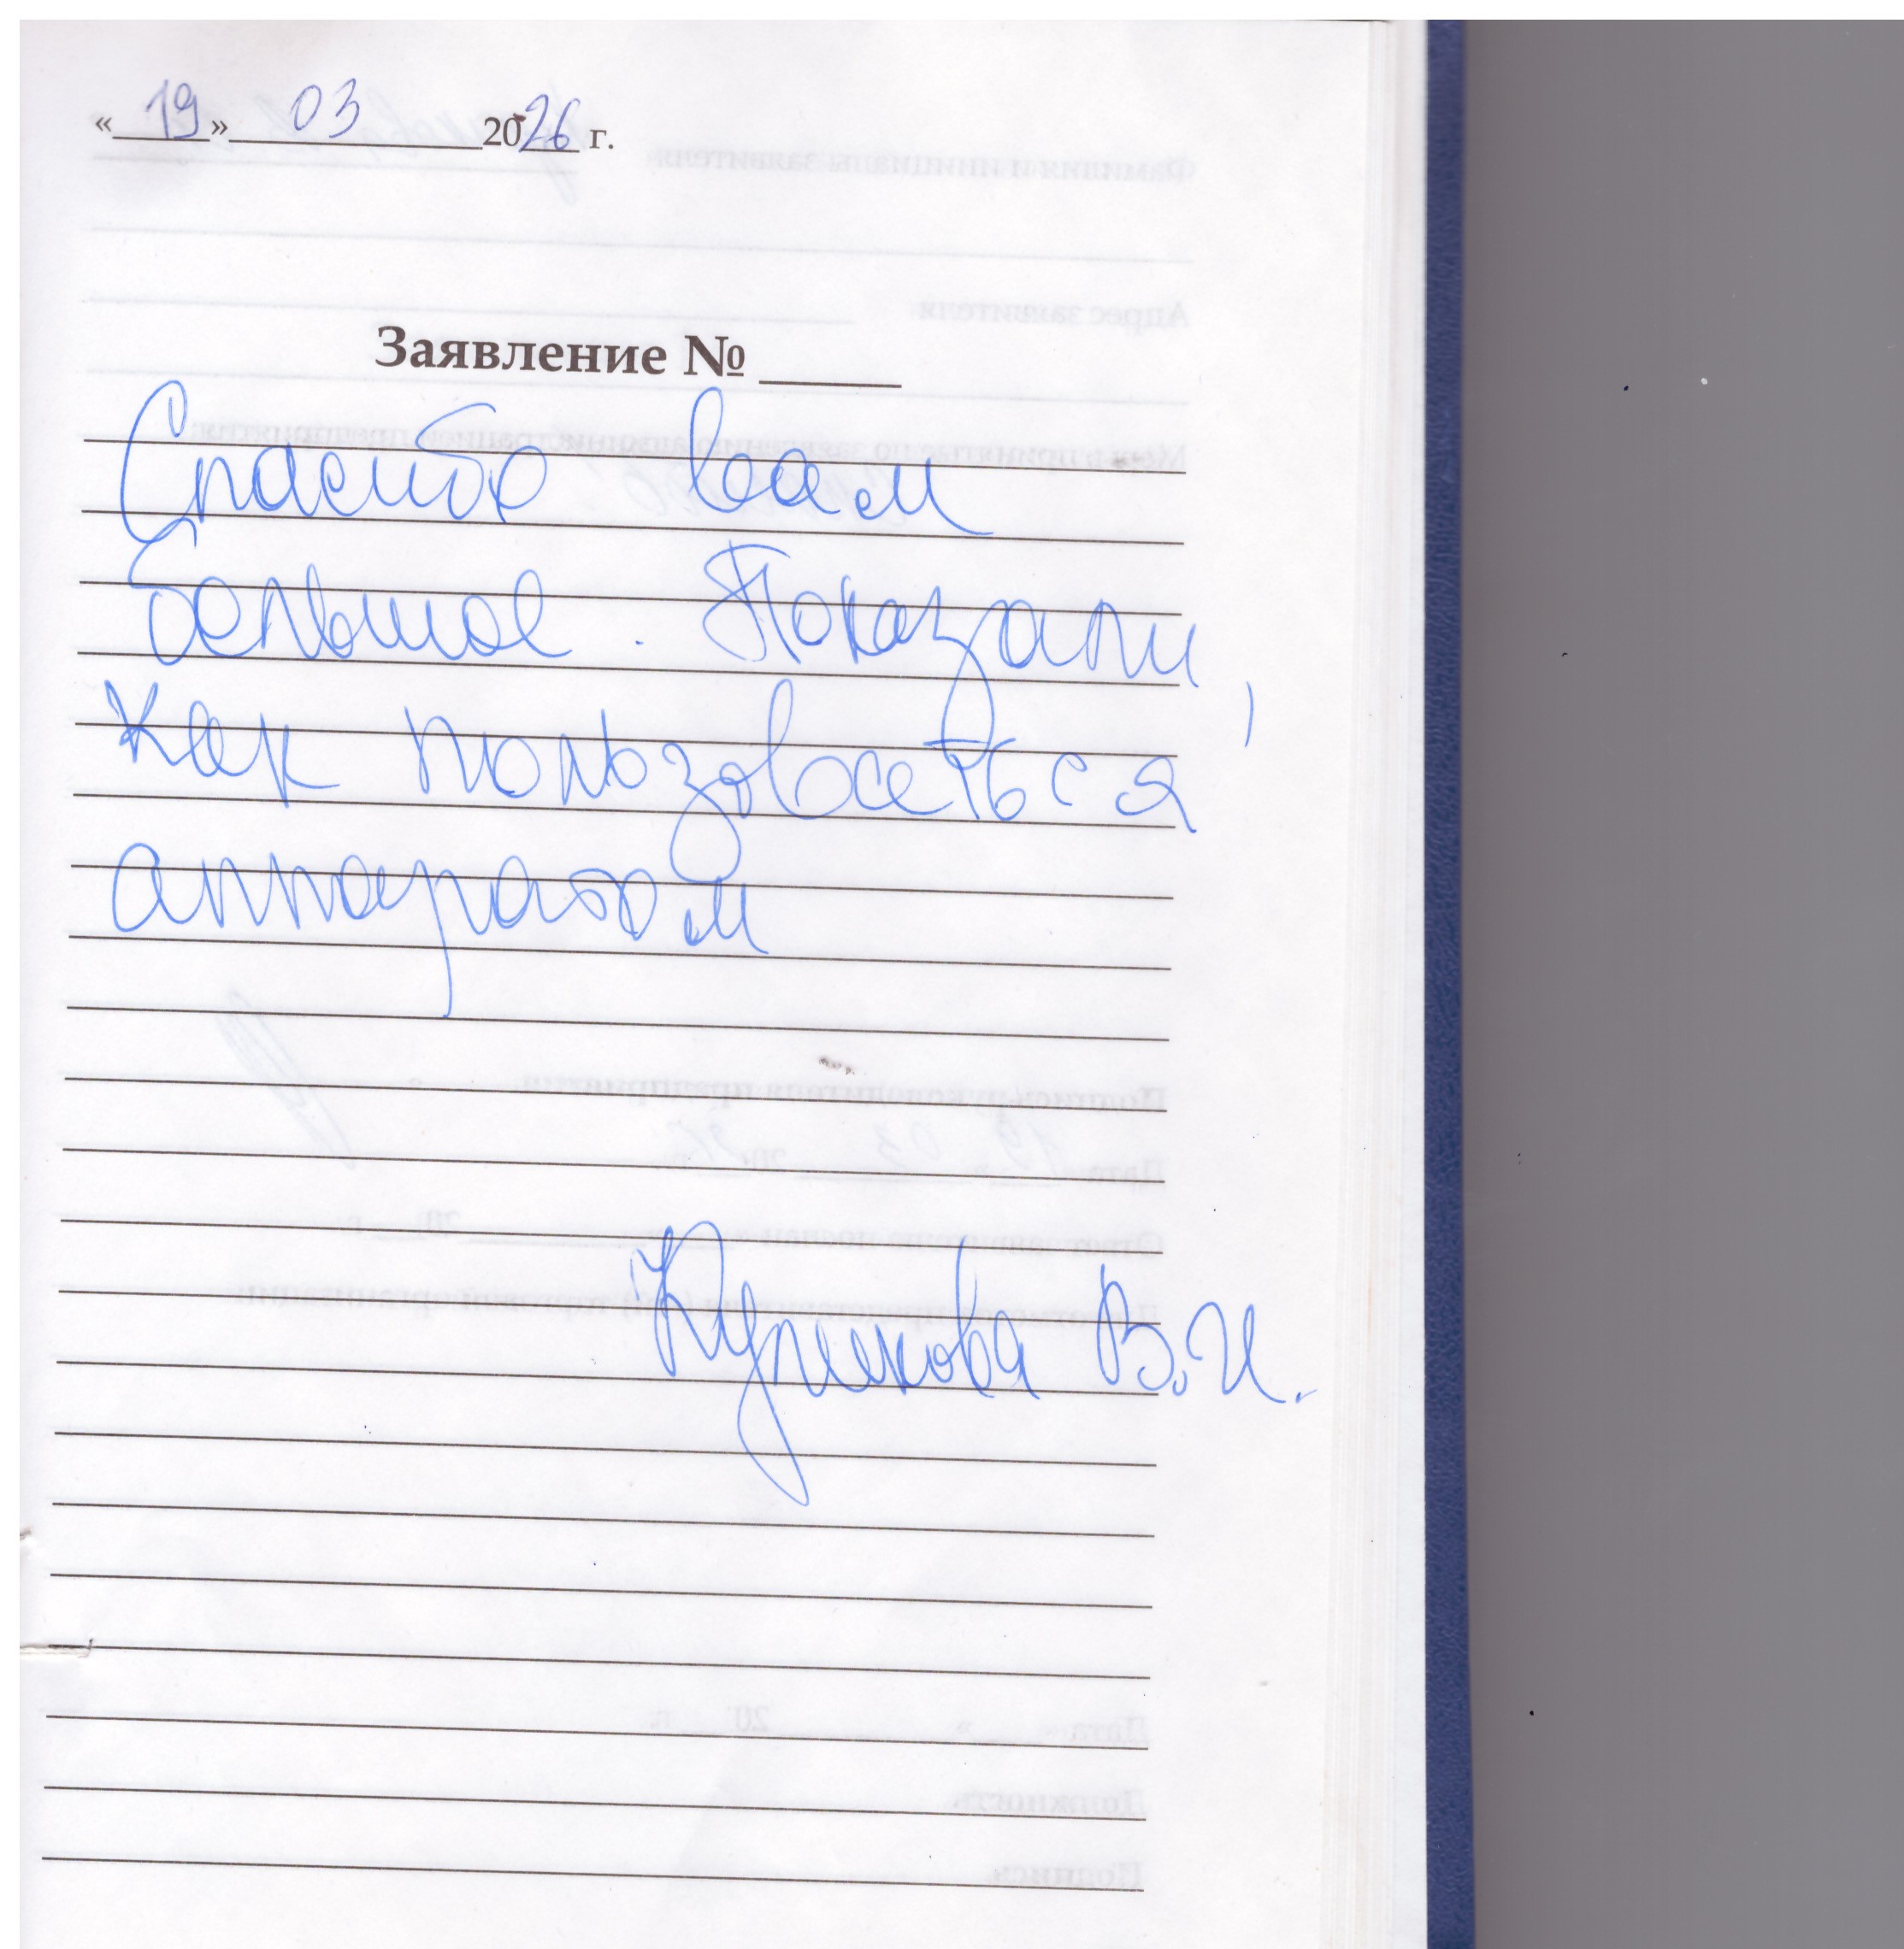 «19» 03 2026 г.
Заявление №
Спасибо вам
большое. Показали,
как пользоваться
аппаратом
В.И.